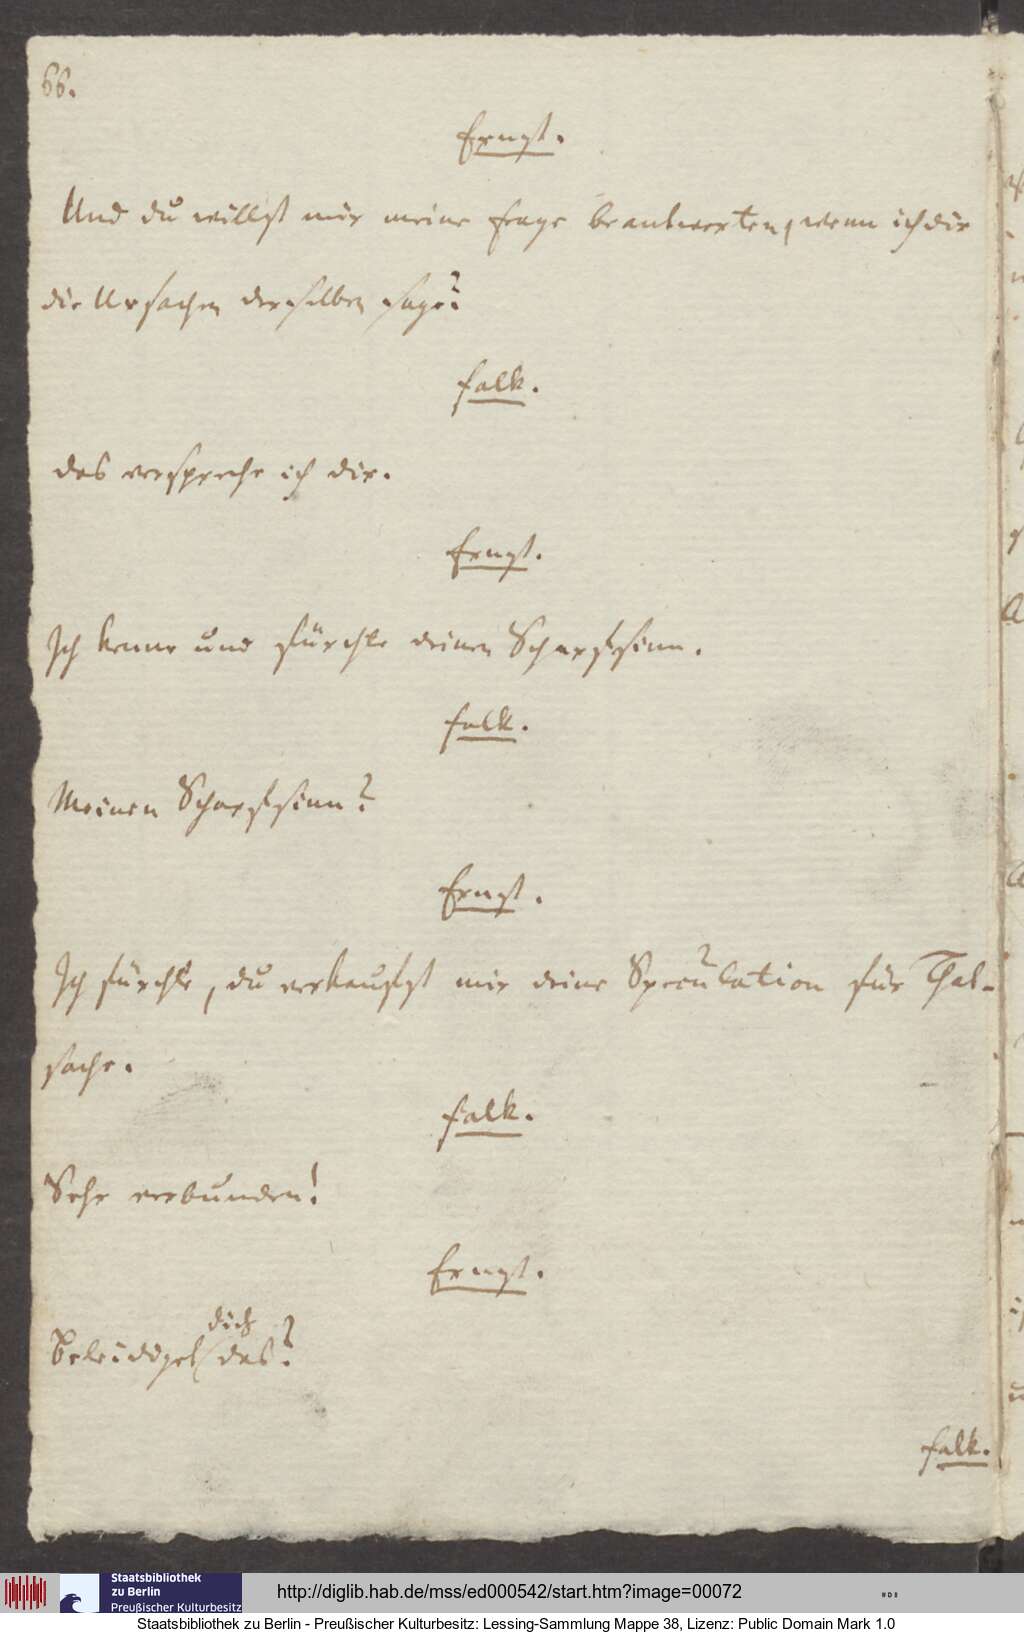 66.
Ernst.
Und du willst mir meine Frage beantworten, wenn ich dir
die Ursachen derselben sage?
Falk.
Das verspreche ich dir.
Ernst.
Ich kenne und fürchte deinen Scharfsinn.
Falk.
Meinen Scharfsinn?
Ernst.
Ich fürchte, du verkaufst mir deine Speculation für That-
sache.
Falk.
Sehr verbunden!
Ernst.
dich
Beleidiget das?
Falk.
Staatsbibliothek
zu Berlin
Preußischer Kulturbesitz
http://diglib.hab.de/mss/ed000542/start.htm?image=00072
Staatsbibliothek zu Berlin - Preußischer Kulturbesitz: Lessing-Sammlung Mappe 38, Lizenz: Public Domain Mark 1.0